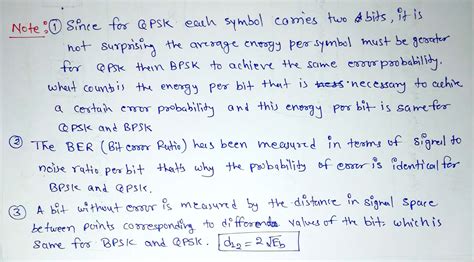 Note: ① Since for QPSK each symbol carries two bits, it is
not surprising the average energy per symbol must be gerater
for QPSK them BPSK to achieve the same error probability.
what counts is the energy per bit that is necessary to achive
a certain error probability and this energy per bit is same for
QPSK and BPSK
② The BER (Bit error Ratio) has been measured in terms of signal to
noise ratio per bit thats why the probability of error is identical for
BPSK and QPSK.
③ A bit without error is measured by the distance in signal space
between points corresponding to difference values of the bit. which is
same for BPSK and QPSK. d₁₂ = 2√Eb